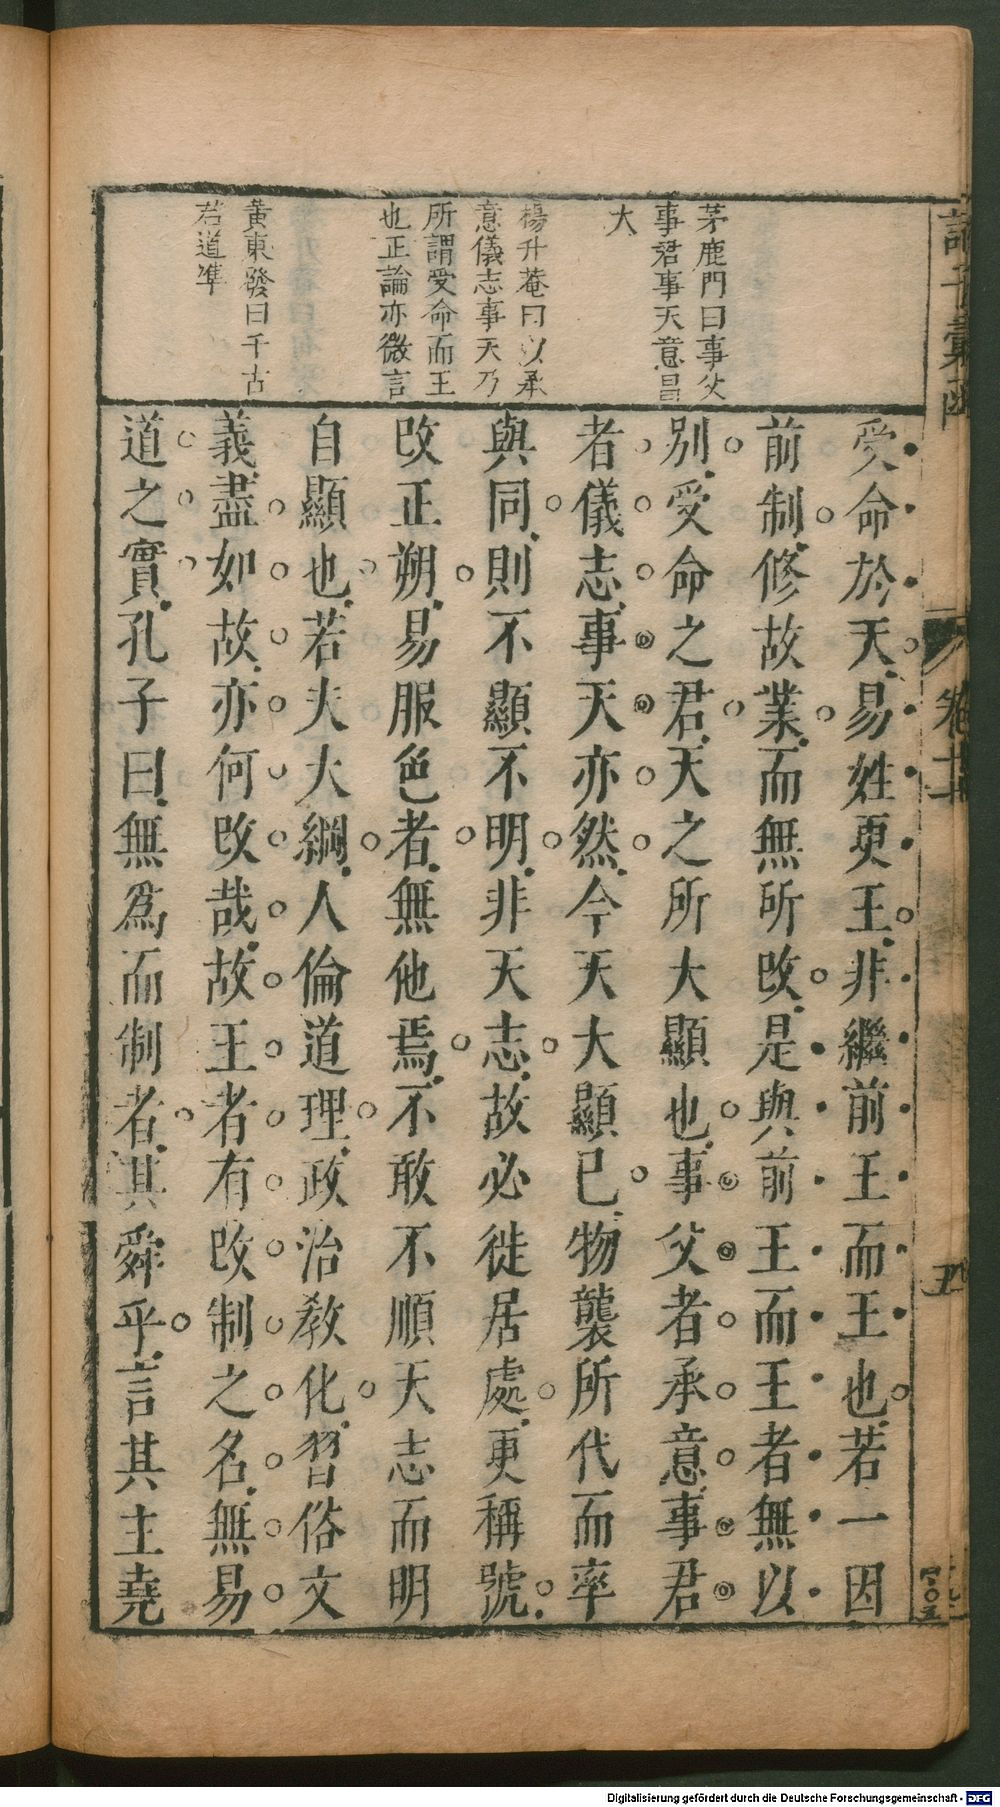 茅鹿門曰事父
事君事天意冐
大
楊升菴曰以承
意儀志事天乃
所謂受命而王
也正論亦微言
黄東發曰千古
若道準
受命於天易姓更王非繼前王而王也若一因
前制修故業而無所改是與前王而王者無以
別受命之君天之所大顯也事父者承意事君
者儀志事天亦然今天大顯已物襲所代而率
與同則不顯不明非天志故必徙居處更稱號
改正朔易服色者無他焉不敢不順天志而明
自顯也若夫大綱人倫道理政治敎化習俗文
義盡如故亦何改哉故王者有改制之名無易
道之實孔子曰無爲而制者其舜乎言其主堯
卷十
Digitalisierung gefördert durch die Deutsche Forschungsgemeinschaft - DFG